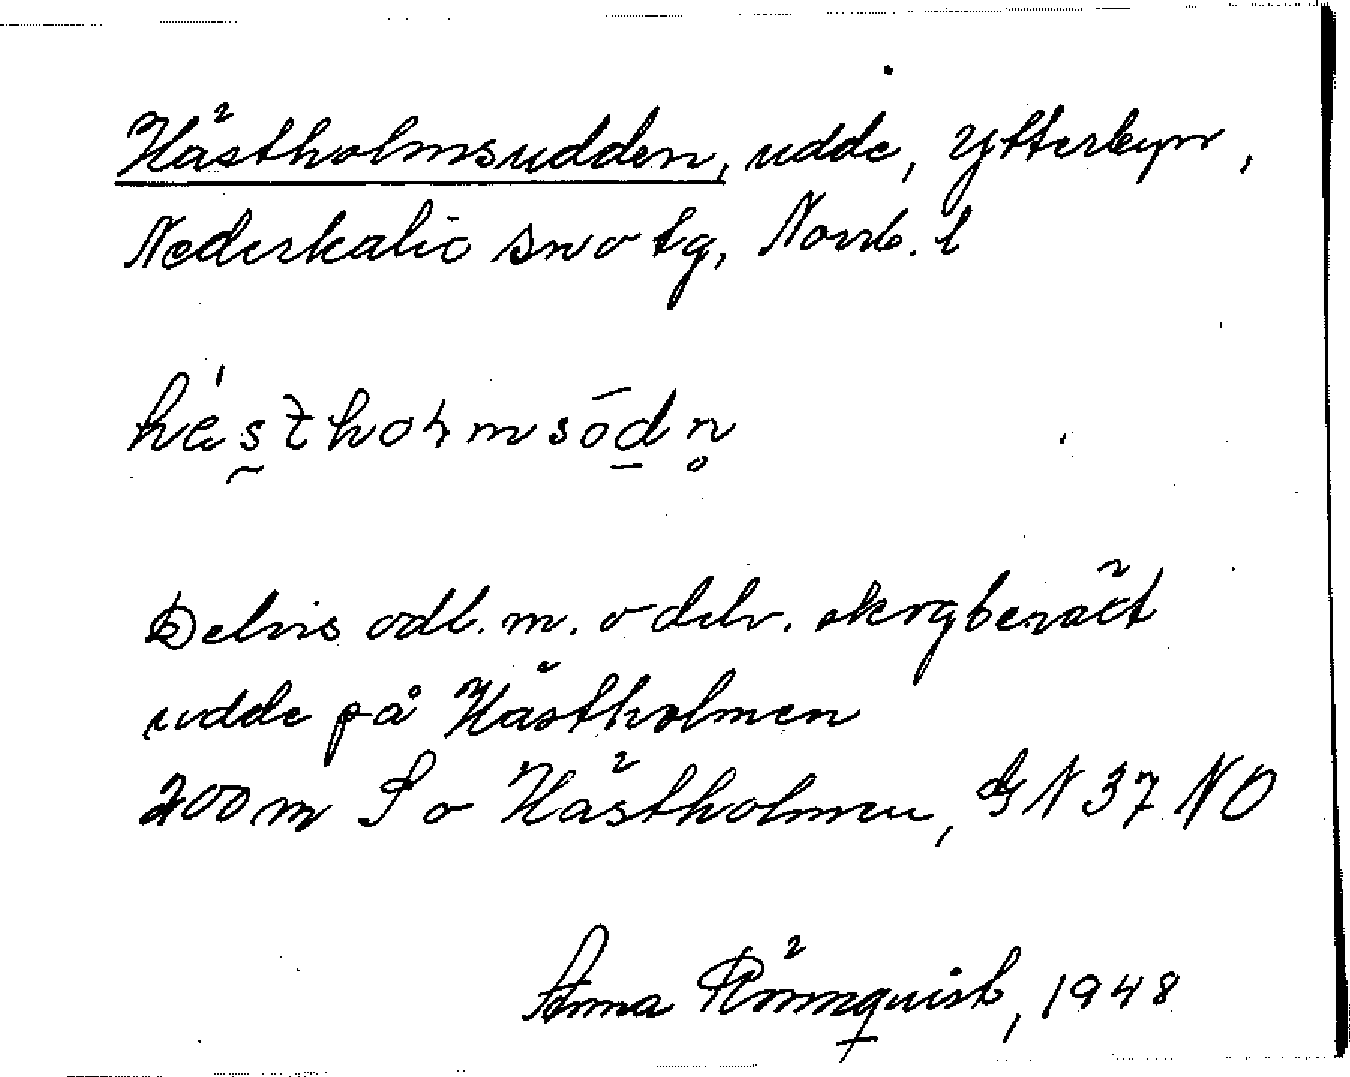 Hästholmsudden, udde, Ytterbyn,
Nederkalix sn o tg, Norrb. l
hästholmsōdn̥
Delvis odl. m. o delv. skogbeväxt
udde på Hästholmen
200 m S o Hästholmen, GN 37 NO
Anna Rönnquist, 1948